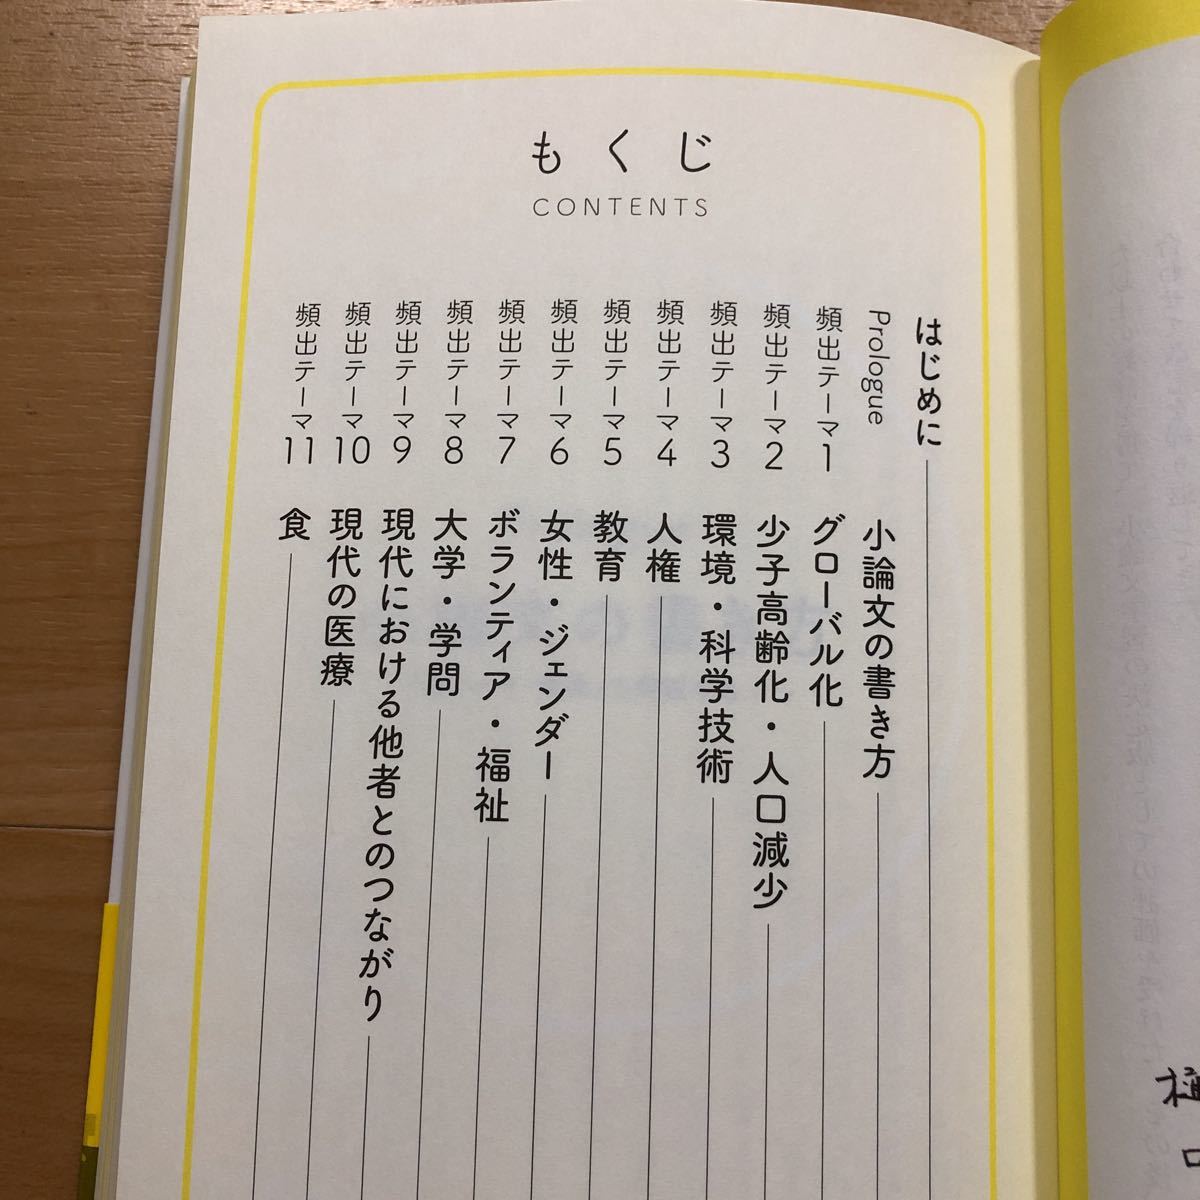 もくじ
CONTENTS
はじめに
Prologue 小論文の書き方
頻出テーマ1 グローバル化
頻出テーマ2 少子高齢化・人口減少
頻出テーマ3 環境・科学技術
頻出テーマ4 人権
頻出テーマ5 教育
頻出テーマ6 女性・ジェンダー
頻出テーマ7 ボランティア・福祉
頻出テーマ8 大学・学問
頻出テーマ9 現代における他者とのつながり
頻出テーマ10 現代の医療
頻出テーマ11 食